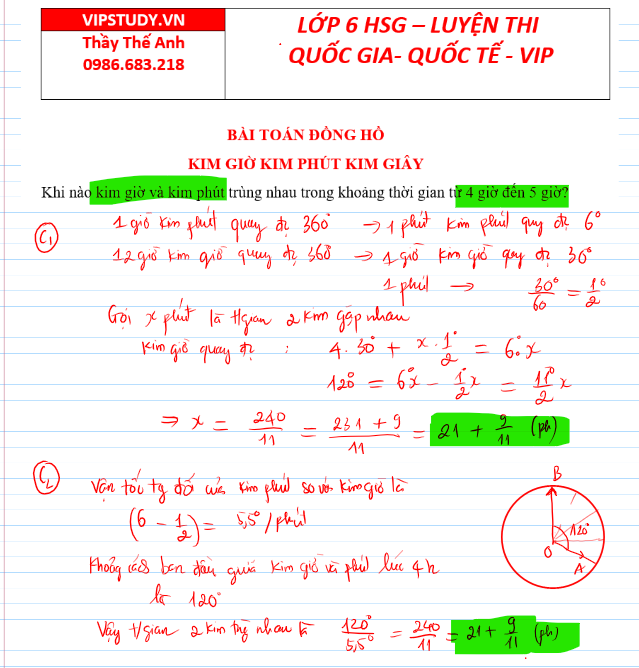 VIPSTUDY.VN
Thầy Thế Anh
0986.683.218
LỚP 6 HSG – LUYỆN THI
QUỐC GIA- QUỐC TẾ - VIP
BÀI TOÁN ĐỒNG HỒ
KIM GIỜ KIM PHÚT KIM GIÂY
Khi nào kim giờ và kim phút trùng nhau trong khoảng thời gian từ 4 giờ đến 5 giờ?
C1 1 giờ kim phút quay đc 360° → 1 phút kim phút quy đc 6°
12 giờ kim giờ quay đc 360° → 1 giờ kim giờ quy đc 30°
1 phút → 30°/60 = 1°/2
Gọi x phút là t/gian 2 kim gặp nhau
Kim giờ quay đc : 4.30° + x.1°/2 = 6°.x
120° = 6°x - 1°/2 x = 11°/2 x
⇒ x = 240/11 = 231 + 9/11 = 21 + 9/11 (ph)
C2
Vận tốc tg đối của kim phút so với kim giờ là
(6 - 1/2) = 5,5°/phút
Khoảng cách ban đầu giữa kim giờ và phút lúc 4h
là 120°
Vậy t/gian 2 kim trg nhau là 120°/5,5° = 240/11 = 21 + 9/11 (ph)
B
120°
O
A